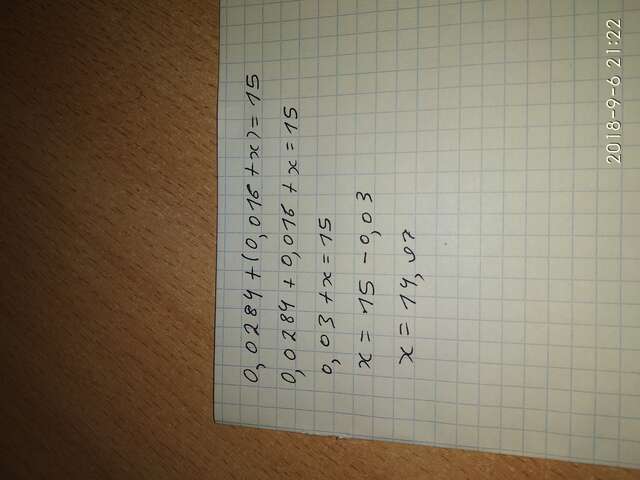 0,0284+(0,016+x)=15
0,0284+0,016+x=15
0,03+x=15
x=15-0,03
x=14,97
2018-9-6 21:22